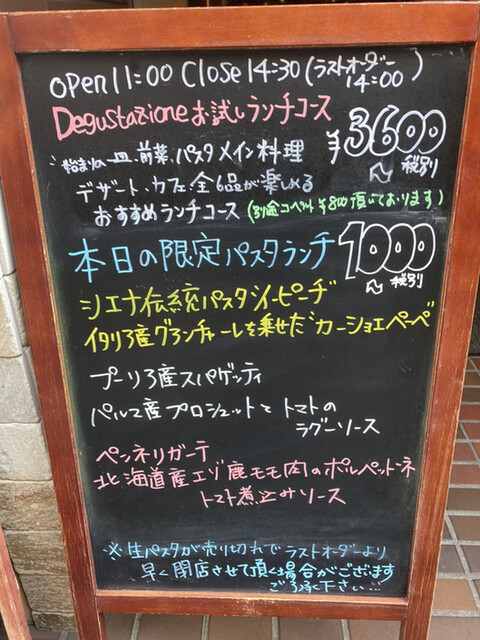 open 11:00 Close 14:30 (ラストオーダー 14:00)
Degustazioneお試しランチコース
¥3600
税別
始まりの一皿、前菜、パスタメイン料理
デザート、カフェ、全6品が楽しめる
おすすめランチコース (別途コペルト¥800頂いております)
本日の限定パスタランチ
1000
税別
シエナ伝統パスタ"ピーチ"
イタリア産グランチャーレを乗せた"カーショエペーペ"
プーリア産スパゲッティ
パルマ産プロシュットとトマトの
ラグーソース
ペンネリガーテ
北海道産エゾ鹿モモ肉のポルペットーネ
トマト煮込みソース
※生パスタが売り切れでラストオーダーより
早く閉店させて頂く場合がございます
ご了承下さい...